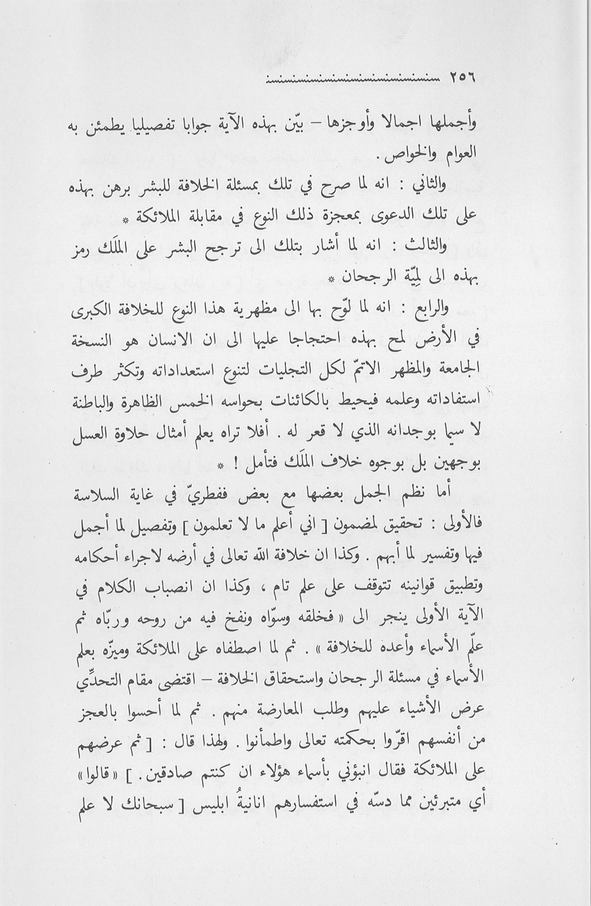 ٢٥٦
وأجملها اجمالا وأوجزها – بيّن بهذه الآية جوابا تفصيليا يطمئن به
العوام والخواص.
والثاني : انه لما صرح في تلك بمسئلة الخلافة للبشر برهن بهذه
على تلك الدعوى بمعجزة ذلك النوع في مقابلة الملائكة *
والثالث : انه لما أشار بتلك الى ترجح البشر على الملَك رمز
بهذه الى لِمِيّة الرجحان *
والرابع : انه لما لوّح بها الى مظهرية هذا النوع للخلافة الكبرى
في الأرض لمح بهذه احتجاجا عليها الى ان الانسان هو النسخة
الجامعة والمظهر الاتمّ لكل التجليات لتنوع استعداداته وتكثر طرف
استفاداته وعلمه فيحيط بالكائنات بحواسه الخمس الظاهرة والباطنة
لا سيما بوجدانه الذي لا قعر له . أفلا تراه يعلم أمثال حلاوة العسل
بوجهين بل بوجوه خلاف الملَك فتأمل ! *
أما نظم الجمل بعضها مع بعض ففطريّ في غاية السلاسة
فالأولى : تحقيق لمضمون [ اني أعلم ما لا تعلمون ] وتفصيل لما أجمل
فيها وتفسير لما أبهم . وكذا ان خلافة الله تعالى في أرضه لاجراء أحكامه
وتطبيق قوانينه تتوقف على علم تام ، وكذا ان انصباب الكلام في
الآية الأولى ينجر الى « فخلقه وسوّاه ونفخ فيه من روحه وربّاه ثم
علّم الأسماء وأعده للخلافة » . ثم لما اصطفاه على الملائكة وميزّه بعلم
الأسماء في مسئلة الرجحان واستحقاق الخلافة – اقتضى مقام التحدِّي
عرض الأشياء عليهم وطلب المعارضة منهم . ثم لما أحسوا بالعجز
من أنفسهم اقرّوا بحكمته تعالى واطمأنوا . ولهذا قال : [ ثم عرضهم
على الملائكة فقال انبؤني بأسماء هؤلاء ان كنتم صادقين. ] « قالوا »
أي متبرئين مما دسّه في استفسارهم انانيةُ ابليس [ سبحانك لا علم